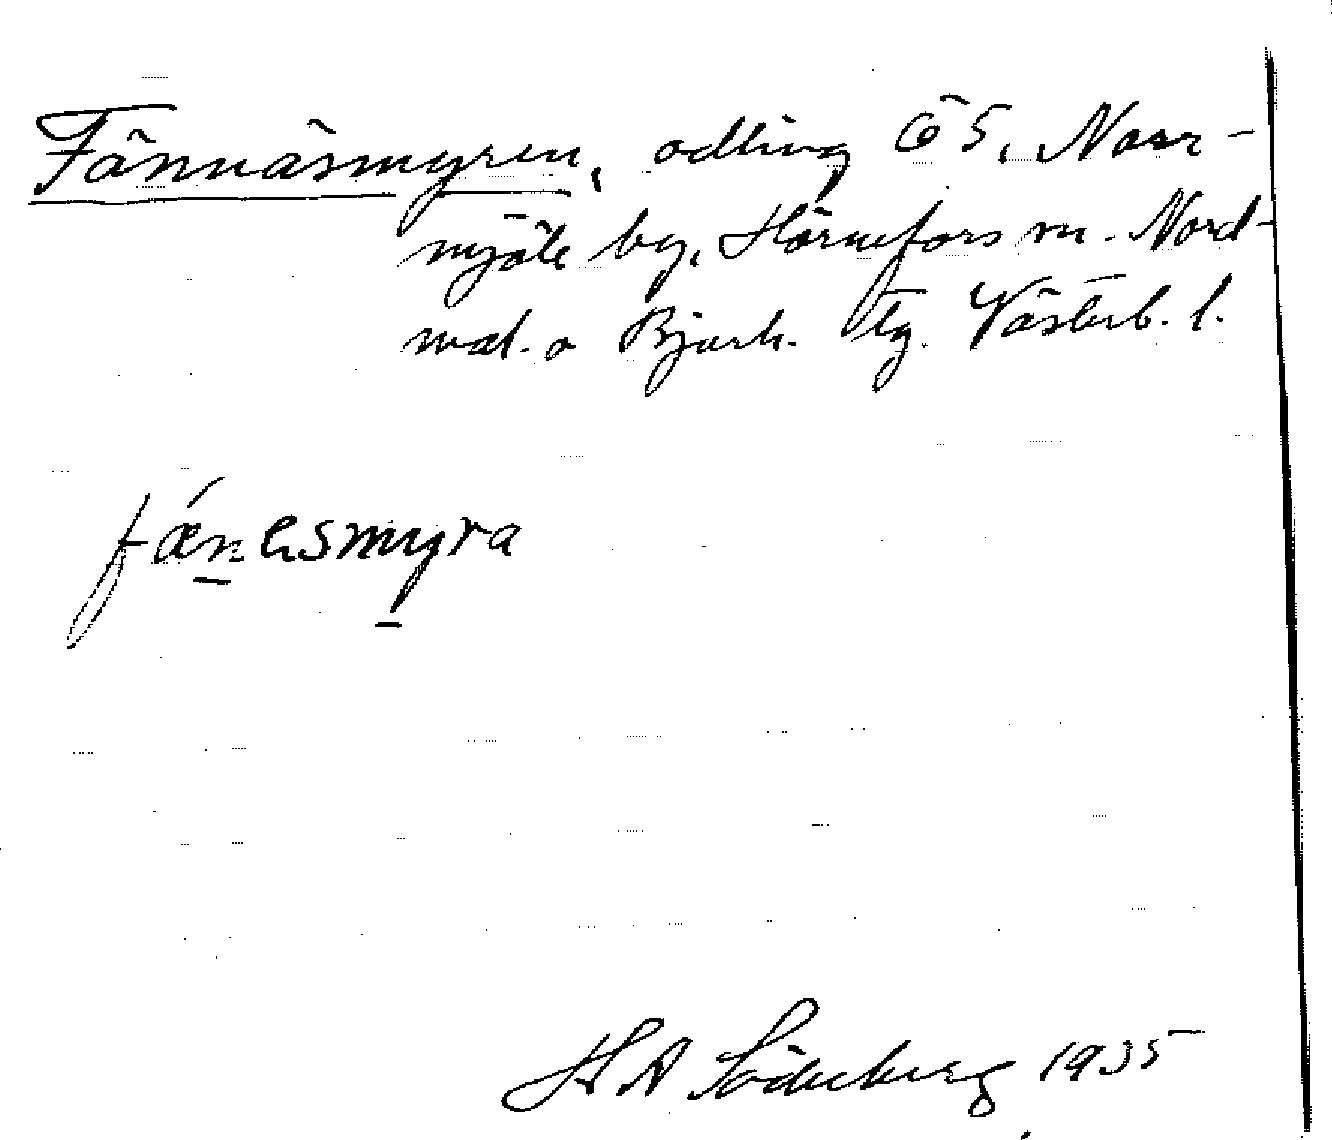 Fännäsmyren, odling Ö5, Norr-
mjöle by, Hörnefors sn. Nord-
mal. o Bjurh. tg. Västerb. l.
fǽnesmyra
H A Söderberg 1935